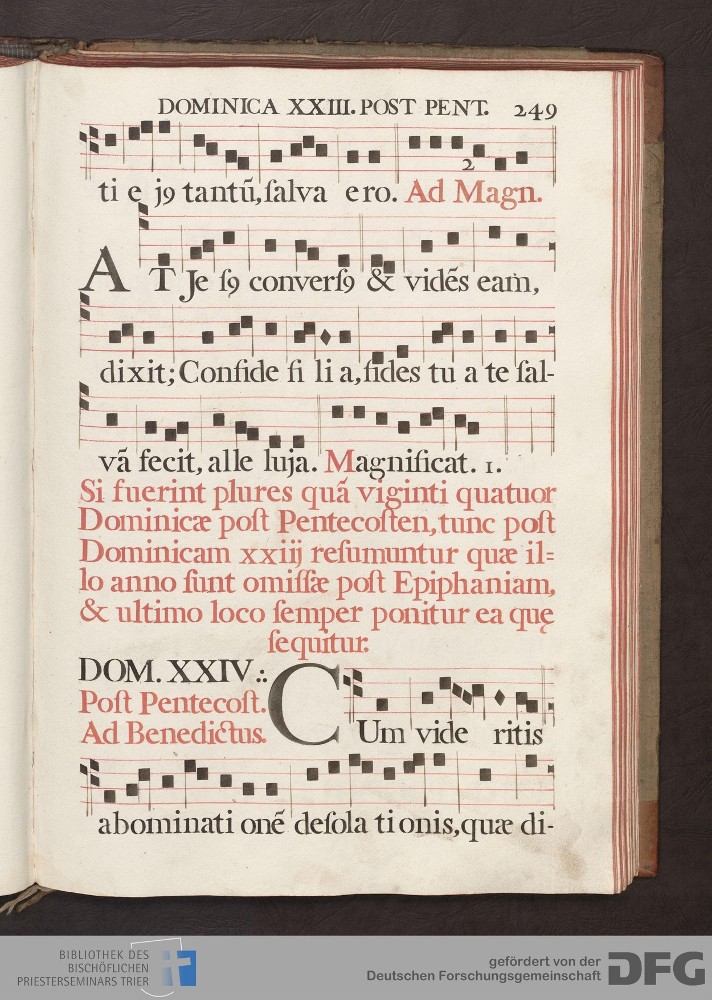 DOMINICA XXIII. POST PENT. 249
2
ti e jꝯ tantũ, ſalva ero. Ad Magn.
AT Jeſꝯ converſꝯ & vidẽs eam,
dixit; Confide fi li a, fides tu a te ſal-
vã fecit, alle luja. Magnificat. 1.
Si fuerint plures quã viginti quatuor
Dominicæ poſt Pentecoſten, tunc poſt
Dominicam xxiij reſumuntur quæ il=
lo anno ſunt omiſſæ poſt Epiphaniam,
& ultimo loco ſemper ponitur ea quę
ſequitur.
DOM. XXIV.:.
Poſt Pentecoſt.
Ad Benedictus.
CUm vide ritis
abominati onẽ deſola tionis, quæ di-
BIBLIOTHEK DES
BISCHÖFLICHEN
PRIESTERSEMINARS TRIER
gefördert von der
Deutschen Forschungsgemeinschaft
DFG